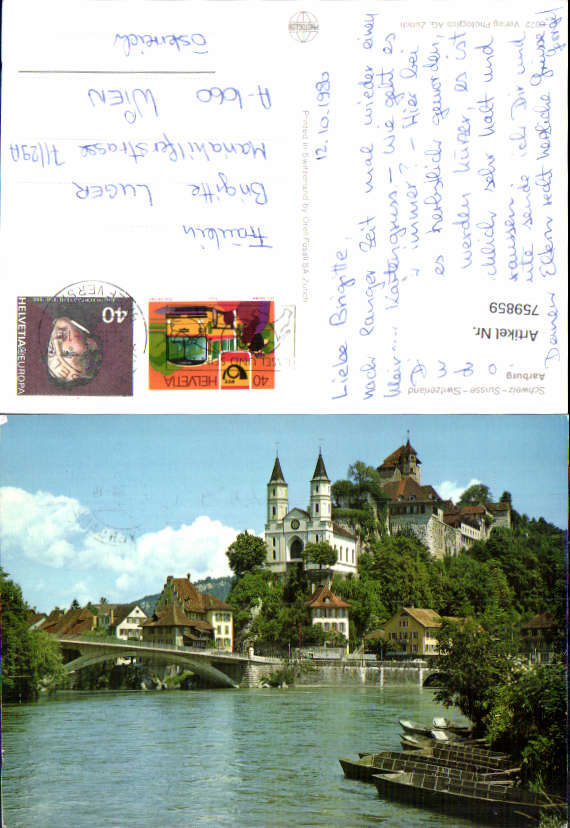 Schweiz – Suisse – Switzerland
Aarburg
Artikel Nr.
759859
12.10.1980
Liebe Brigitte,
nach langer Zeit mal wieder einen
kleinen Kartengruss – wie geht es
immer? – Hier bei
es herbstlich geworden,
werden kürzer, es ist
sehr kalt und
draussen.
sende ich Dir und
Deinen Eltern recht herzliche Grüsse
Printed in Switzerland by Orell Füssli SA, Zürich
6072 Verlag Photoglob AG, Zürich
PHOTOGLOB
HELVETIA
40
HELVETIA EUROPA
40
Fräulein
Brigitte LUGER
Mariahilferstrasse 71/29A
A-1060 WIEN
Österreich